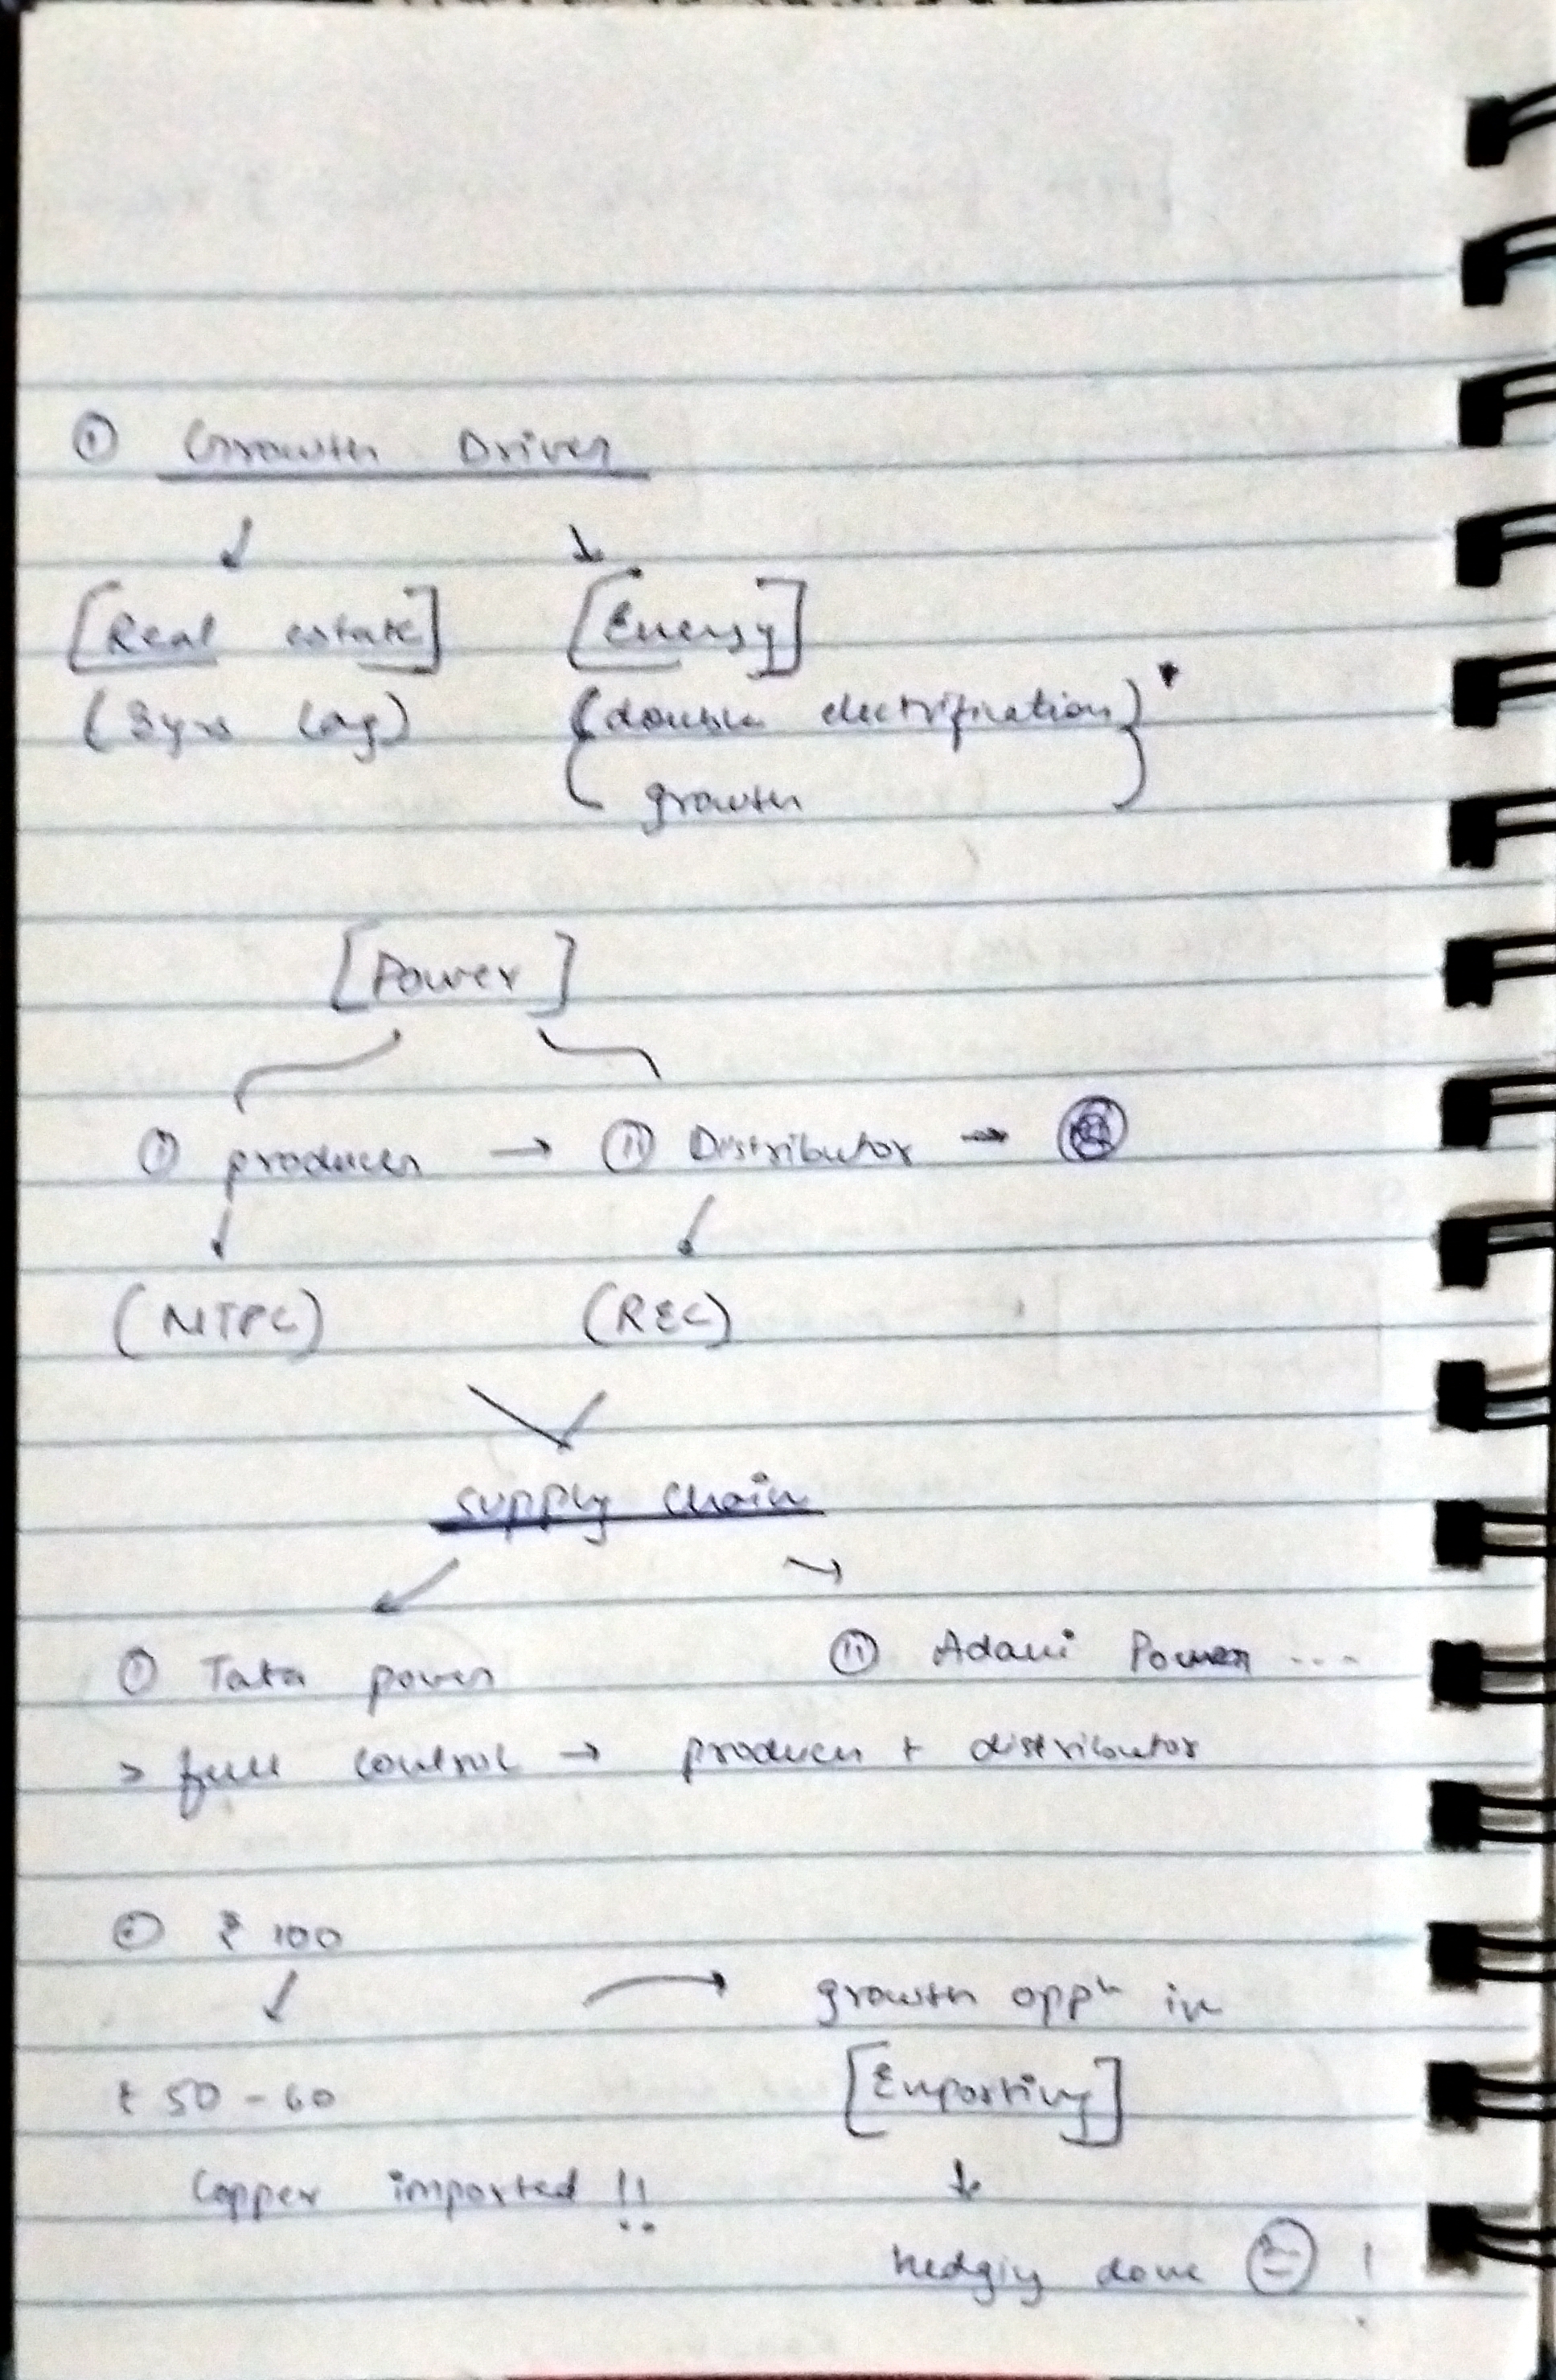 ① Growth Driver
↓ ↘
[Real estate] [Energy]
(3yrs lag) (double electrification)
growth
[Power]
① producer → ⑪ Distributor →
↓ ↓
(NTPC) (REC)
supply chain
① Tata power ⑪ Adani Power ...
> full control → producer + distributor
₹ 100
↓ → growth oppn in
₹ 50 - 60 [Exporting]
Copper imported !! ↓
hedging done !